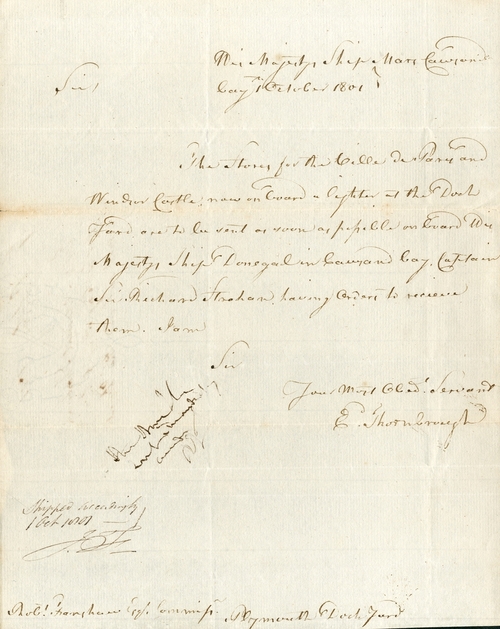 His Majestys Ship Mars Cawsand
bay 1 October 1801
Sir,
The Stores for the Ville de Paris and
Windsor Castle, now on board a lighter at the Dock
Yard are to be sent as soon as possible on board His
Majestys Ship Donegal in Cawsand bay, Captain
Sir Richard Strahan, having Orders to recieve
them. I am
Sir
Your Most Obedt. Servant
E. Thornbrough
Shipped accordingly
1 Oct 1801
Robt. Fanshawe Esqr. Commissr. Plymouth Dock Yard